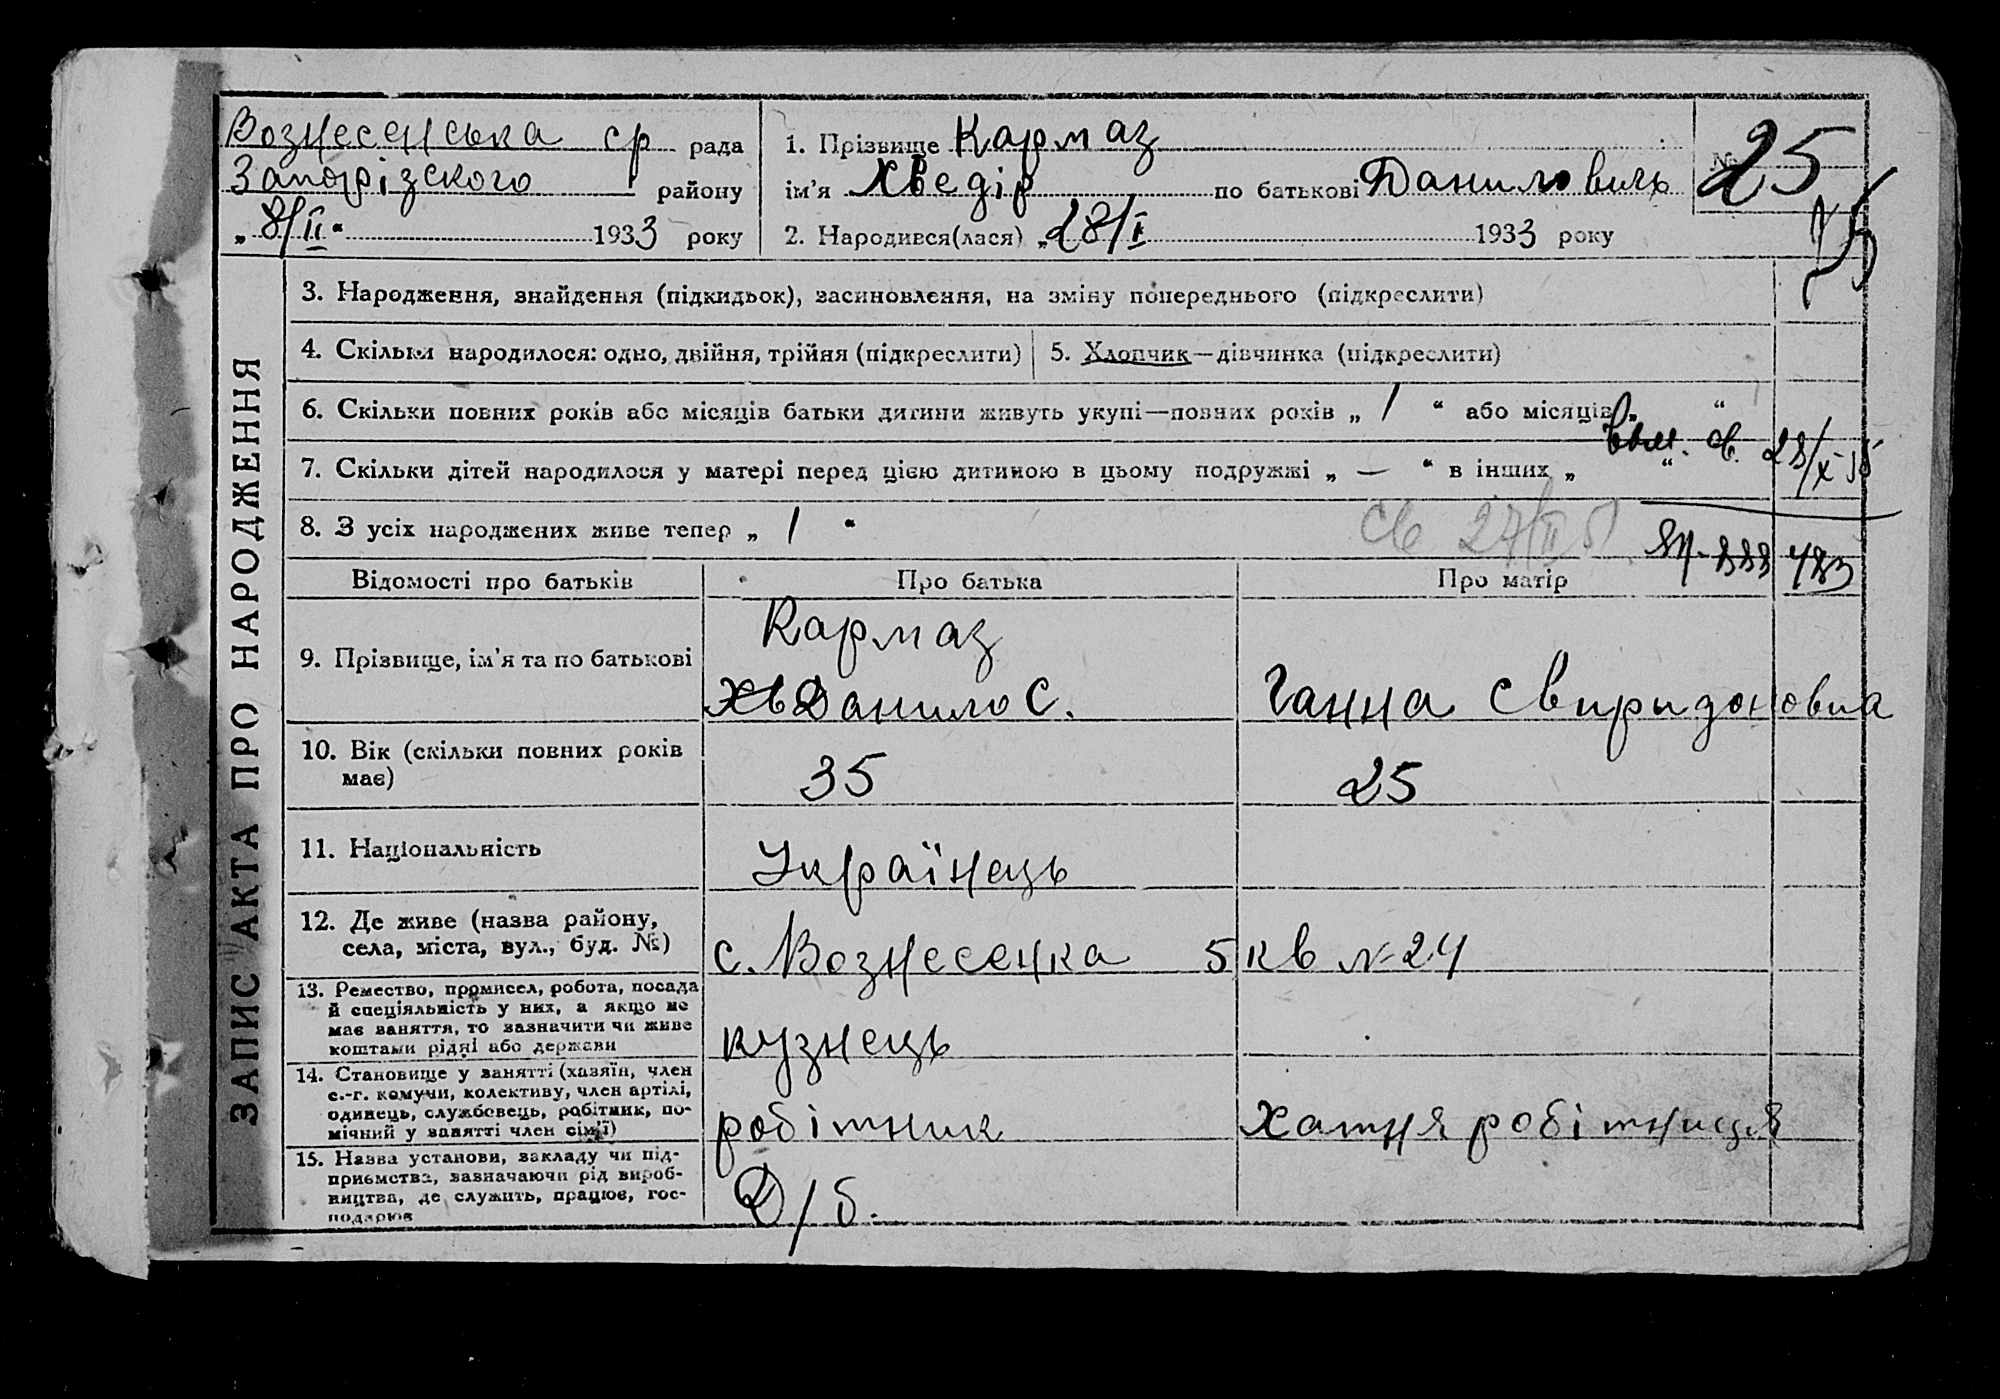 ЗАПИС АКТА ПРО НАРОДЖЕННЯ
Вознесенська ср рада
Запорізского району
„8/II“ 1933 року
1. Прізвище Кармаз
ім'я Хведір по батькові Данилович
2. Народився(лася) „28/I 1933 року
№ 25
3. Народження, знайдення (підкидьок), засиновлення, на зміну попереднього (підкреслити)
4. Скільки народилося: одно, двійня, трійня (підкреслити) 5. Хлопчик—дівчинка (підкреслити)
6. Скільки повних років або місяців батьки дитини живуть укупі—повних років „ 1 “ або місяців „ “
7. Скільки дітей народилося у матері перед цією дитиною в цьому подружжі „ — “ в інших „ “
8. З усіх народжених живе тепер „ 1 “
Відомості про батьків Про батька Про матір
9. Прізвище, ім'я та по батькові
Кармаз
Данило С. Ганна Свиридоновна
10. Вік (скільки повних років має)
35 25
11. Національність
Українець
12. Де живе (назва району, села, міста, вул., буд. №)
с. Вознесенка 5 кв № 24
13. Ремество, промисел, робота, посада
й спеціяльність у них, а якщо не
має заняття, то зазначити чи живе
коштами рідні або держави
кузнець
14. Становище у занятті (хазяїн, член
с.-г. комуни, колективу, член артілі,
одинець, службовець, робітник, по-
мічний у занятті член сім'ї)
робітник хатня робітниця
15. Назва установи, закладу чи під-
приємства, зазначаючи рід вироб-
ництва, де служить, працює, гос-
подарює
Д/б.